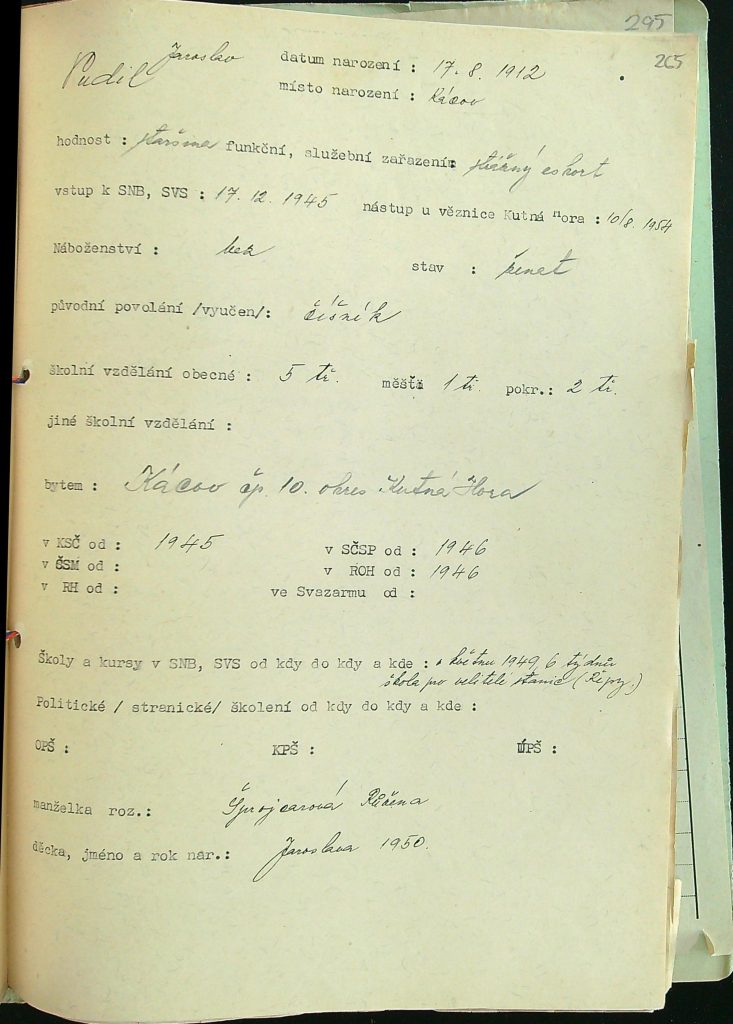 295
265
Pudil Jaroslav datum narození : 17. 8. 1912
místo narození : Kácov
hodnost : staršina funkční, služební zařazení: strážný eskort
vstup k SNB, SVS : 17. 12. 1945 nástup u věznice Kutná Hora : 10/8. 1954
Náboženství : bez
stav : ženat
původní povolání /vyučen/: číšník
školní vzdělání obecné : 5 tř. měšť: 1 tř. pokr.: 2 tř.
jiné školní vzdělání :
bytem : Kácov čp. 10. okres Kutná Hora
v KSČ od : 1945 v SČSP od : 1946
v ČSM od : v ROH od : 1946
v RH od : ve Svazarmu od :
Školy a kursy v SNB, SVS od kdy do kdy a kde : v květnu 1949, 6 týdnů
škola pro velitele stanic (Řepy.)
Politické / stranické/ školení od kdy do kdy a kde :
OPŠ : KPŠ : ÚPŠ :
manželka roz.: Růžena
děcka, jméno a rok nar.: Jaroslava 1950.